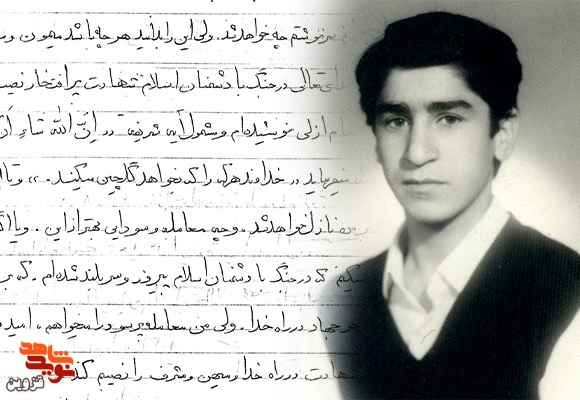 سرنوشتم چه خواهد شد. ولی این را بدانید هر چه باشد میمون و
تعالی در جنگ با دشمنان اسلام شهادت پر افتخار نصیب
ازلی نوشیده‌ام و مشمول آیه شریفه « اِنَّ اللّٰه شاءَ اَن
میفرماید « خداوند هر که را که بخواهد گلچین میکند. » و یا
نازل خواهد شد. و چه معامله و سودایی بهتر از این. و یا
که در جنگ با دشمنان اسلام پیروز و سربلند شده‌ام. که
جهاد در راه خدا. ولی من معامله پر سود را میخواهم، امید
شهادت در راه خدا و میهن و شرف را نصیبم کند
نوید شاهد
قزوین